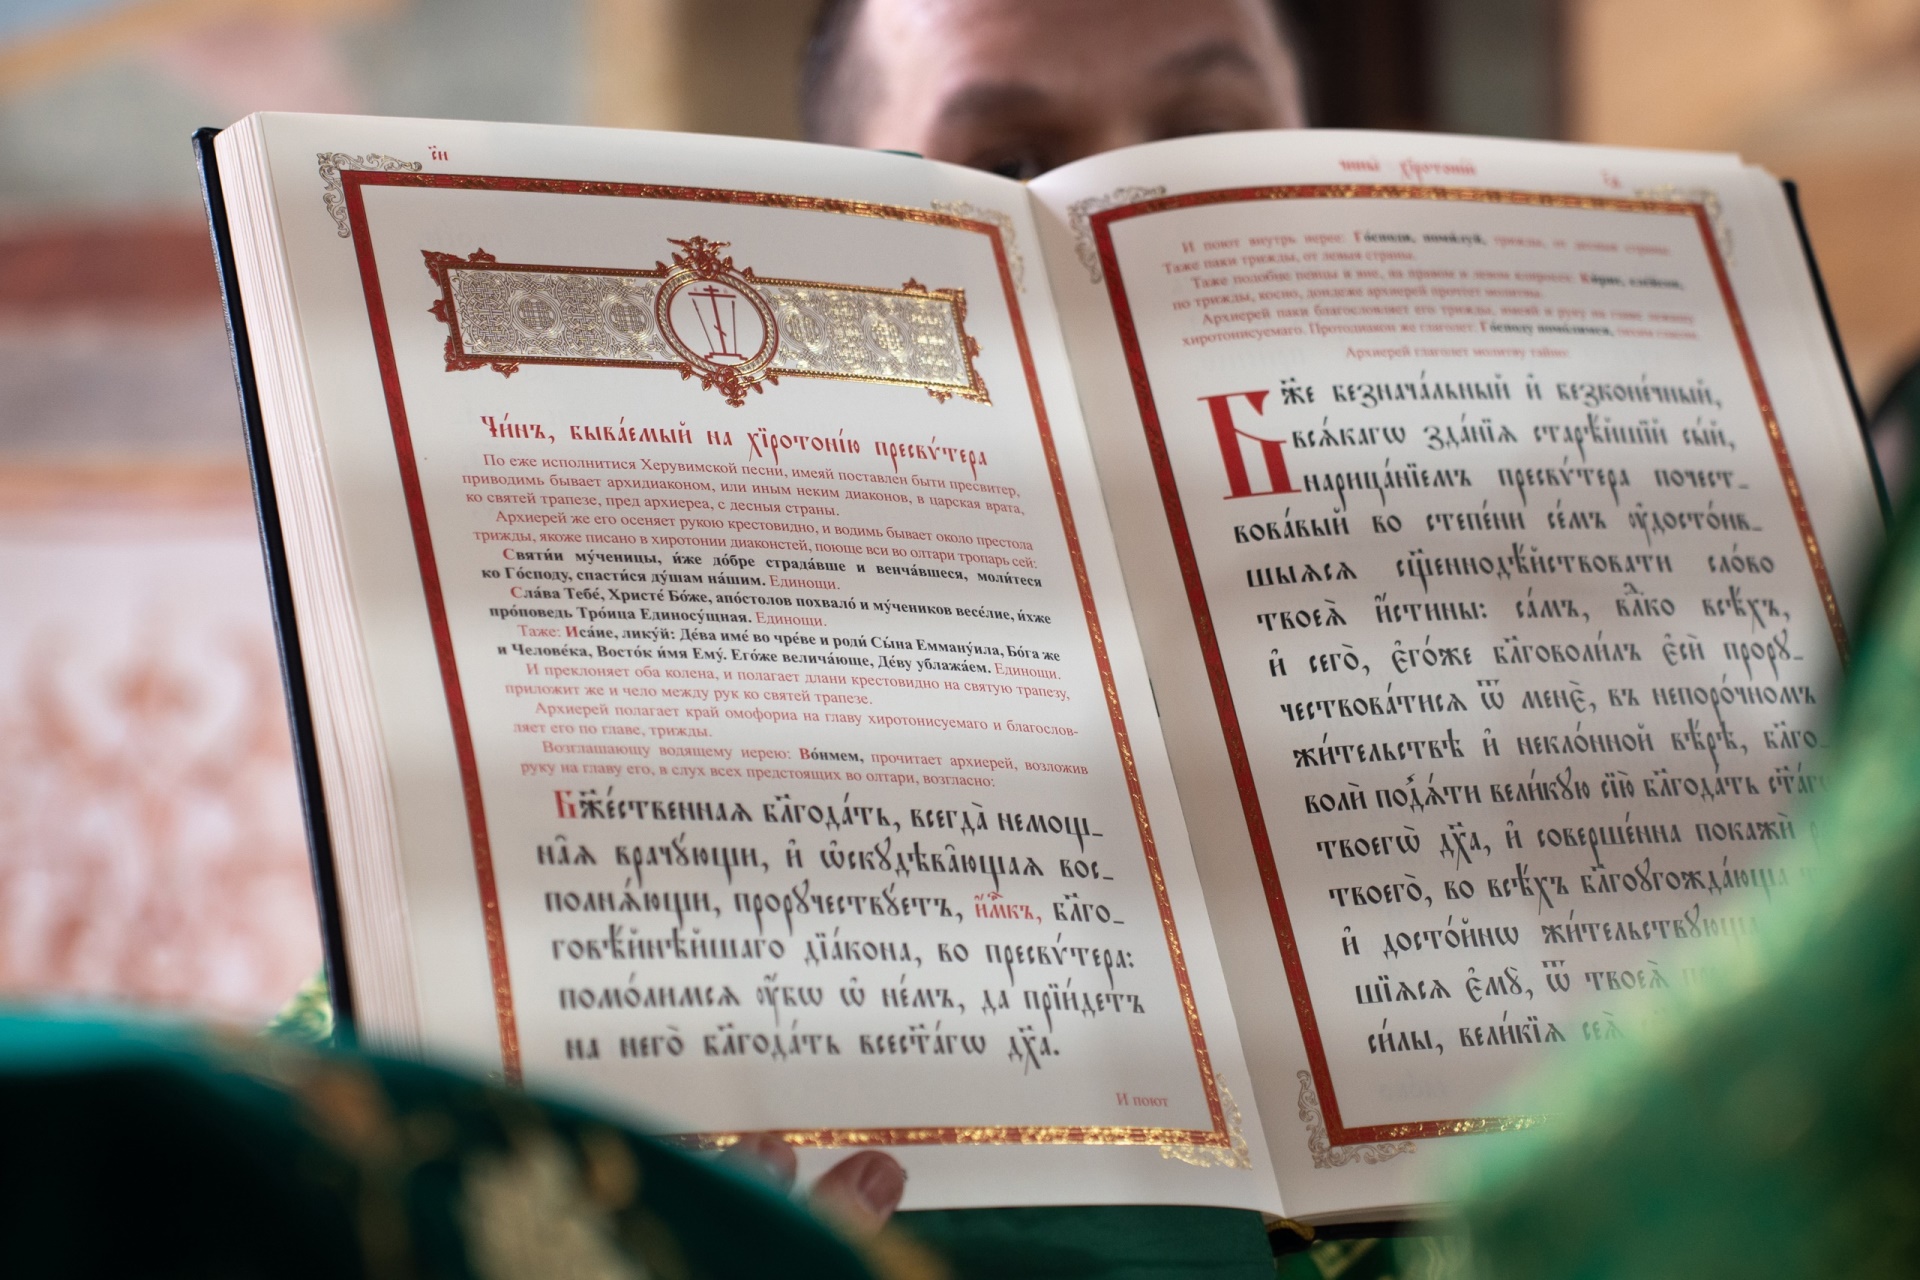 Чи́нъ, быва́емый на хїротоні́ю пресвѵ́тера
По еже исполнитися Херувимской песни, имеяй поставлен быти пресвитер,
приводимь бывает архидиаконом, или иным неким диаконов, в царская врата,
ко святей трапезе, пред архиереа, с десныя страны.
Архиерей же его осеняет рукою крестовидно, и водимь бывает около престола
трижды, якоже писано в хиротонии диаконстей, поюще вси во олтари тропарь сей:
Святи́и му́ченицы, и́же до́бре страда́вше и венча́вшеся, моли́теся
ко Го́споду, спасти́ся ду́шам на́шим. Единощи.
Сла́ва Тебе́, Христе́ Бо́же, апо́столов похвало́ и му́чеников весе́лие, и́хже
про́поведь Тро́ица Единосу́щная. Единощи.
Таже: Иса́ие, лику́й: Де́ва име́ во чре́ве и роди́ Сы́на Емману́ила, Бо́га же
и Челове́ка, Восто́к и́мя Ему́. Его́же велича́юще, Де́ву ублажа́ем. Единощи.
И преклоняет оба колена, и полагает длани крестовидно на святую трапезу,
приложит же и чело между рук ко святей трапезе.
Архиерей полагает край омофориа на главу хиротонисуемаго и благослов-
ляет его по главе, трижды.
Возглашающу водящему иерею: Во́нмем, прочитает архиерей, возложив
руку на главу его, в слух всех предстоящих во олтари, возгласно:
Бж҃е́ственнаѧ блг҃ода́ть, всегда̀ немощ_
на̑ѧ врачꙋ́ющи, и҆ ѡ҆скꙋдѣва̑ющаѧ вос_
полнѧ́ющи, прорꙋчествꙋ́етъ, и҆́м҃къ, бл҃го_
говѣ́йнѣйшаго дїа́кона, во пресвѵ́тера:
помо́лимсѧ ᲂу҆́бѡ ѡ҆ не́мъ, да прїи́детъ
на него̀ бл҃года́ть всест҃а́гѡ дх҃а.
И поют
чинъ хїротоній
И поют внутрь иерее: Го́споди, поми́луй, трижды, от десныя страны.
Таже паки трижды, от левыя страны.
Таже подобне певцы и вне, на правом и левом клиросе: Ки́рие, еле́йсон,
по трижды, косно, дондеже архиерей прочтет молитвы.
Архиерей паки благословляет его трижды, имеяй и руку на главе лежащу
хиротонисуемаго. Протодиакон же глаголет: Го́споду помо́лимся, тихим гласом.
Архиерей глаголет молитву тайно:
Бж҃е безнача́льный и҆ безконе́чный,
всѧ́кагѡ зда́нїѧ старѣ́йшїй сы́й,
нарица́нїемъ пресвѵ́тера почест_
вова́вый во сте́пени се́мъ ᲂу҆досто́ив_
шыѧсѧ сщ҃еннодѣ́йствовати сло́во
твоеѧ̀ и҆́стины: са́мъ, вл҃ко всѣ́хъ,
и҆ сего̀, є҆го́же бл҃говоли́лъ є҆сѝ прорꙋ_
чествова́тисѧ ѿ менє̀, въ непоро́чномъ
жи́тельствѣ и҆ некло́нной вѣ́рѣ, бл҃го_
волѝ под̾ѧ́ти вели́кꙋю сїю̀ бл҃года́ть ст҃а́гѡ
твоегѡ̀ дх҃а, и҆ соверше́нна покажѝ
твоего̀, во всѣ́хъ бл҃гоᲂугожда́юща
и҆ досто́йнѡ жи́тельствꙋюща
шїѧсѧ є҆мꙋ̀, ѿ твоеѧ̀
си́лы, вели́кїѧ сеѧ̀